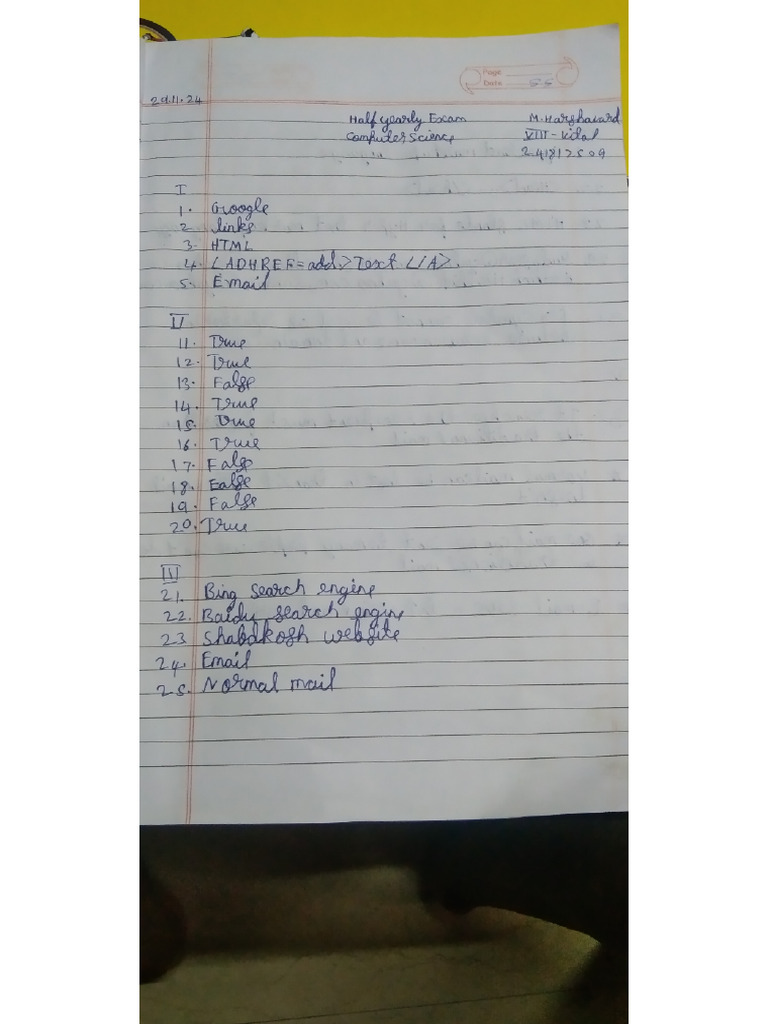 Page
Date 55
29.11.24
Half yearly Exam
M. Harshavard
Computer Science
VIII - Vital
241812509
I
1. Google
2. links
3. HTML
4. <ADHREF=add>Text </A>.
5. Email
II
11. True
12. True
13. False
14. True
15. True
16. True
17. False
18. False
19. False
20. True
III
21. Bing search engine
22. Baidu search engine
23 Shabdkosh website
24. Email
25. Normal mail